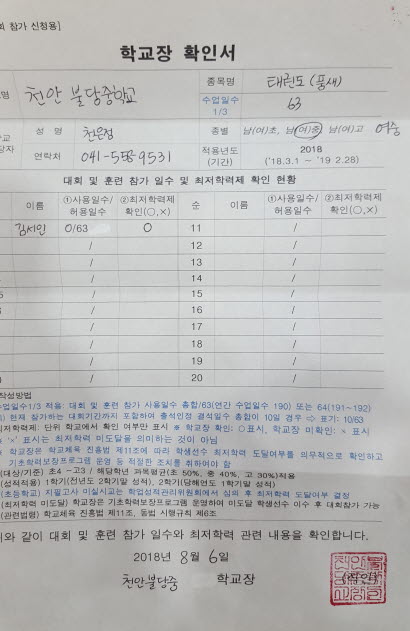 회 참가 신청용]
학교장 확인서
명 천안 불당중학교 종목명 태권도 (품새)
수업일수 1/3 63
학교 담당자 성 명 종별 남(여)초, 남(여)중, 남(여)고 여중
연락처 041-558-9531 적용년도 (기간) 2018 ('18.3.1 ~ '19 2.28)
대회 및 훈련 참가 일수 및 최저학력제 확인 현황
이름 ①사용일수/허용일수 ②최저학력제 확인(○,×) 순 이름 ①사용일수/허용일수 ②최저학력제 확인(○,×)
김서인 0/63 O 11 /
/ 12 /
/ 13 /
/ 14 /
/ 15 /
/ 16 /
/ 17 /
/ 18 /
/ 19 /
/ 20 /
작성방법
수업일수1/3 적용: 대회 및 훈련 참가 사용일수 총합/63(연간 수업일수 190) 또는 64(191~192)
현재 참가하는 대회기간까지 포함하여 출석인정 결석일수 총합이 10일 경우 ⇨ 표기: 10/63
최저학력제: 단위 학교에서 확인 여부만 표시 ※ 학교장 확인: ○표시, 학교장 미확인: × 표시
'×' 표시는 최저학력 미도달을 의미하는 것이 아님
※ 학교장은 학교체육 진흥법 제11조에 따라 학생선수 최저학력 도달여부를 의무적으로 확인하고
기초학력보장프로그램 운영 등 적절한 조치를 취하여야 함
(대상/기준) 초4~고3 / 해당학년 과목평균(초 50%, 중 40%, 고 30%)적용
(성적적용) 1학기(전년도 2학기말 성적), 2학기(당해연도 1학기말 성적)
(초등학교) 지필고사 미실시교는 학업성적관리위원회에서 심의 후 최저학력 도달여부 결정
(최저학력 미도달) 학교장은 기초학력보장프로그램 운영하여 미도달 학생선수 이수 후 대회참가 가능
(관련법령) 학교체육 진흥법 제11조, 동법 시행규칙 제6조
위와 같이 대회 및 훈련 참가 일수와 최저학력 관련 내용을 확인합니다.
2018년 8월 6일
천안불당중 학교장 (직인)